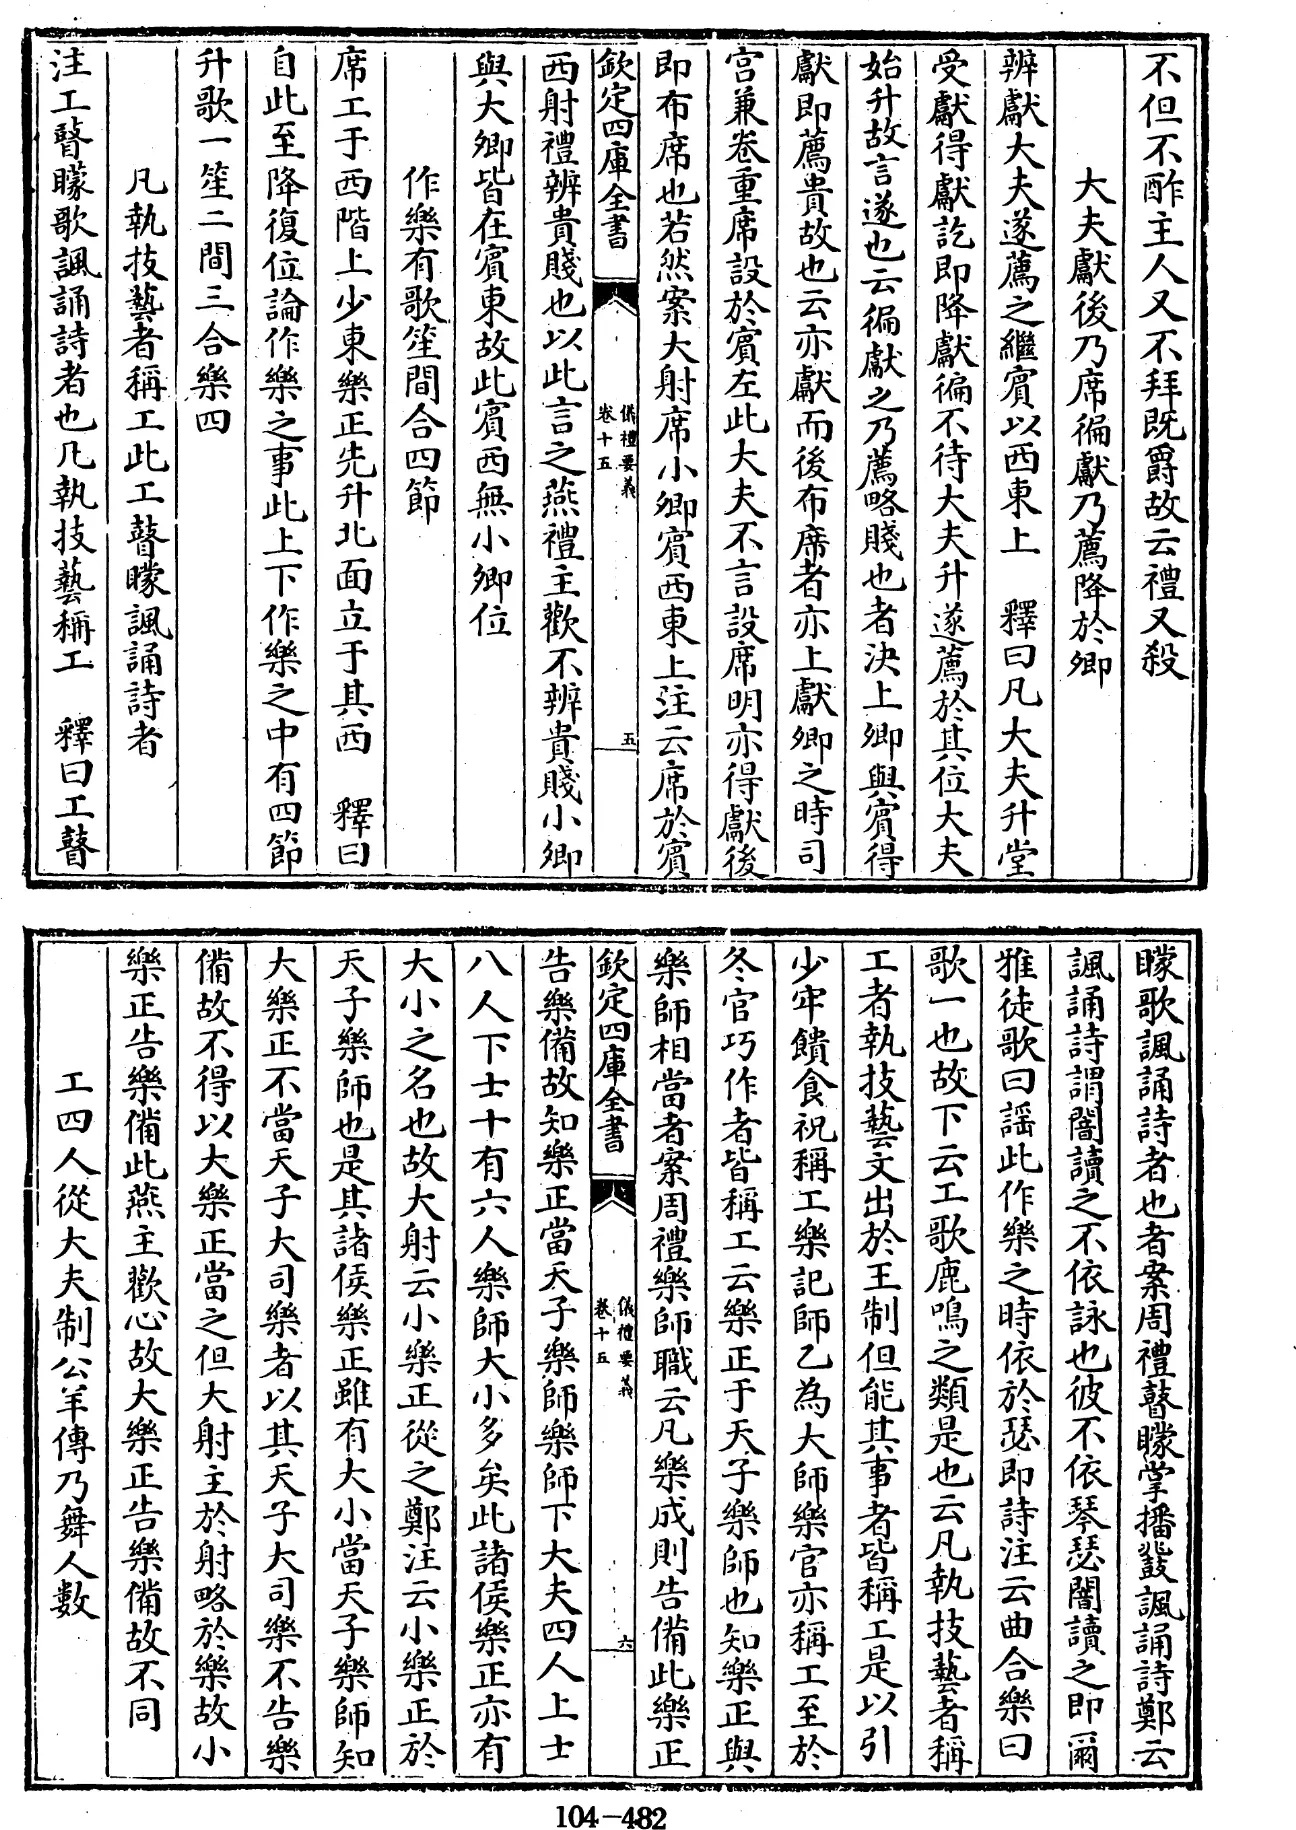 不但不酢主人又不拜既爵故云禮又殺
大夫獻後乃席徧獻乃薦降於卿
辨獻大夫遂薦之繼賓以西東上　釋曰凡大夫升堂
受獻得獻訖即降獻徧不待大夫升遂薦於其位大夫
始升故言遂也云徧獻之乃薦略賤也者決上卿與賓得
獻即薦貴故也云亦獻而後布席者亦上獻卿之時司
宮兼卷重席設於賓左此大夫不言設席明亦得獻後
即布席也若然案大射席小卿賓西東上注云席於賓
欽定四庫全書
儀禮要義
卷十五
五
西射禮辨貴賤也以此言之燕禮主歡不辨貴賤小卿
與大卿皆在賓東故此賓西無小卿位
作樂有歌笙間合四節
席工于西階上少東樂正先升北面立于其西　釋曰
自此至降復位論作樂之事此上下作樂之中有四節
升歌一笙二間三合樂四
凡執技藝者稱工此工瞽矇諷誦詩者
注工瞽矇歌諷誦詩者也凡執技藝稱工　釋曰工瞽
矇歌諷誦詩者也者案周禮瞽矇掌播鼗諷誦詩鄭云
諷誦詩謂闇讀之不依詠也彼不依琴瑟闇讀之即爾
雅徒歌曰謡此作樂之時依於瑟即詩注云曲合樂曰
歌一也故下云工歌鹿鳴之類是也云凡執技藝者稱
工者執技藝文出於王制但能其事者皆稱工是以引
少牢饋食祝稱工樂記師乙為大師樂官亦稱工至於
冬官巧作者皆稱工云樂正于天子樂師也知樂正與
樂師相當者案周禮樂師職云凡樂成則告備此樂正
欽定四庫全書
儀禮要義
卷十五
六
告樂備故知樂正當天子樂師樂師下大夫四人上士
八人下士十有六人樂師大小多矣此諸侯樂正亦有
大小之名也故大射云小樂正從之鄭注云小樂正於
天子樂師也是其諸侯樂正雖有大小當天子樂師知
大樂正不當天子大司樂者以其天子大司樂不告樂
備故不得以大樂正當之但大射主於射略於樂故小
樂正告樂備此燕主歡心故大樂正告樂備故不同
工四人從大夫制公羊傳乃舞人數
104-482